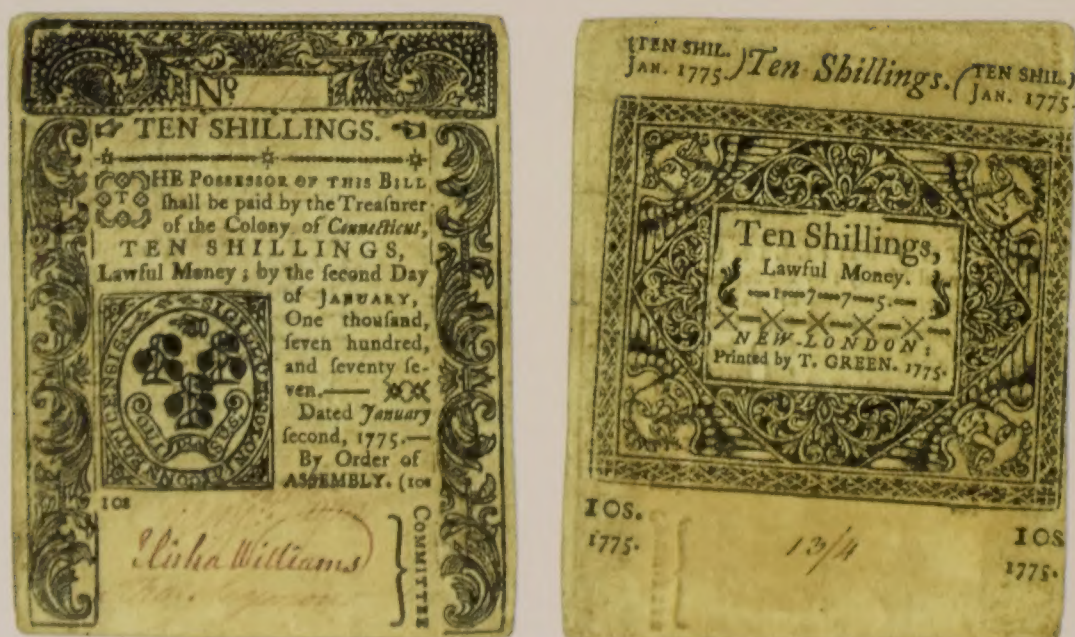 Nº
TEN SHILLINGS.
THE POSSESSOR OF THIS BILL
ſhall be paid by the Treaſurer
of the Colony of Connecticut,
TEN SHILLINGS,
Lawful Money; by the ſecond Day
of JANUARY,
One thouſand,
ſeven hundred,
and ſeventy ſe-
ven.—
Dated January
ſecond, 1775.—
By Order of
ASSEMBLY. (10s
10s
Elisha Williams
COMMITTEE
(TEN SHIL.
JAN. 1775.) Ten Shillings. (TEN SHIL.)
JAN. 1775.
Ten Shillings,
Lawful Money.
1—7—7—5.
NEW-LONDON:
Printed by T. GREEN. 1775.
10S.
1775.
13/4
10S
1775.